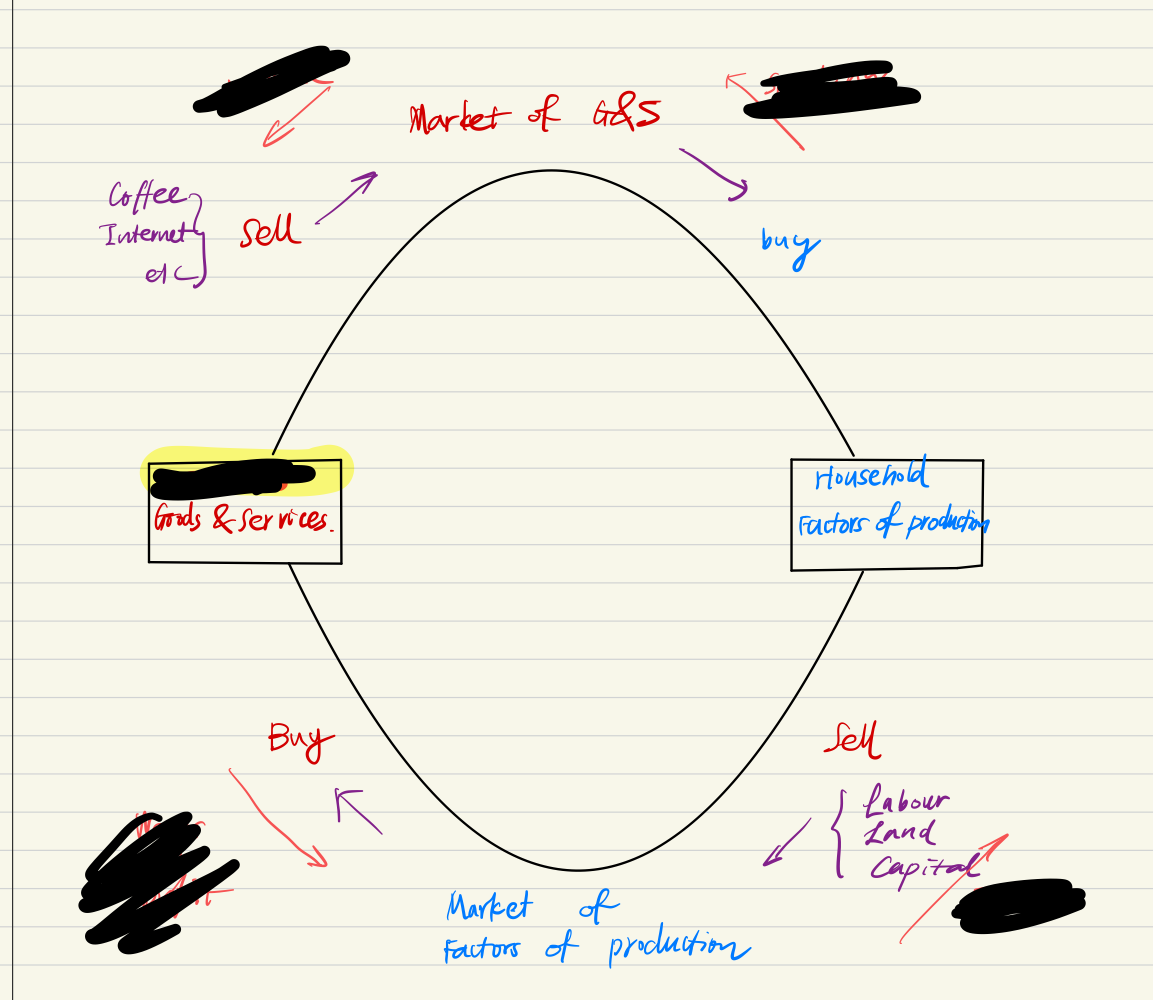 Market of G&S
Coffee
Internet
etc
Sell
buy
Goods & Services.
Household
Factors of production
Buy
Sell
Labour
Land
Capital
Market of
Factors of production